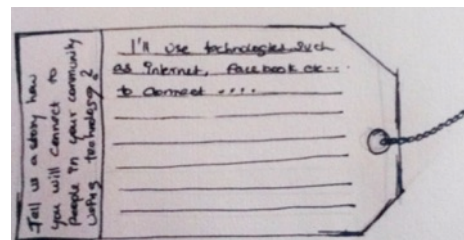 Tell us a story how
you will connect to
people in your community
using technology?
I'll use technologies such
as internet, facebook etc...
to connect ....